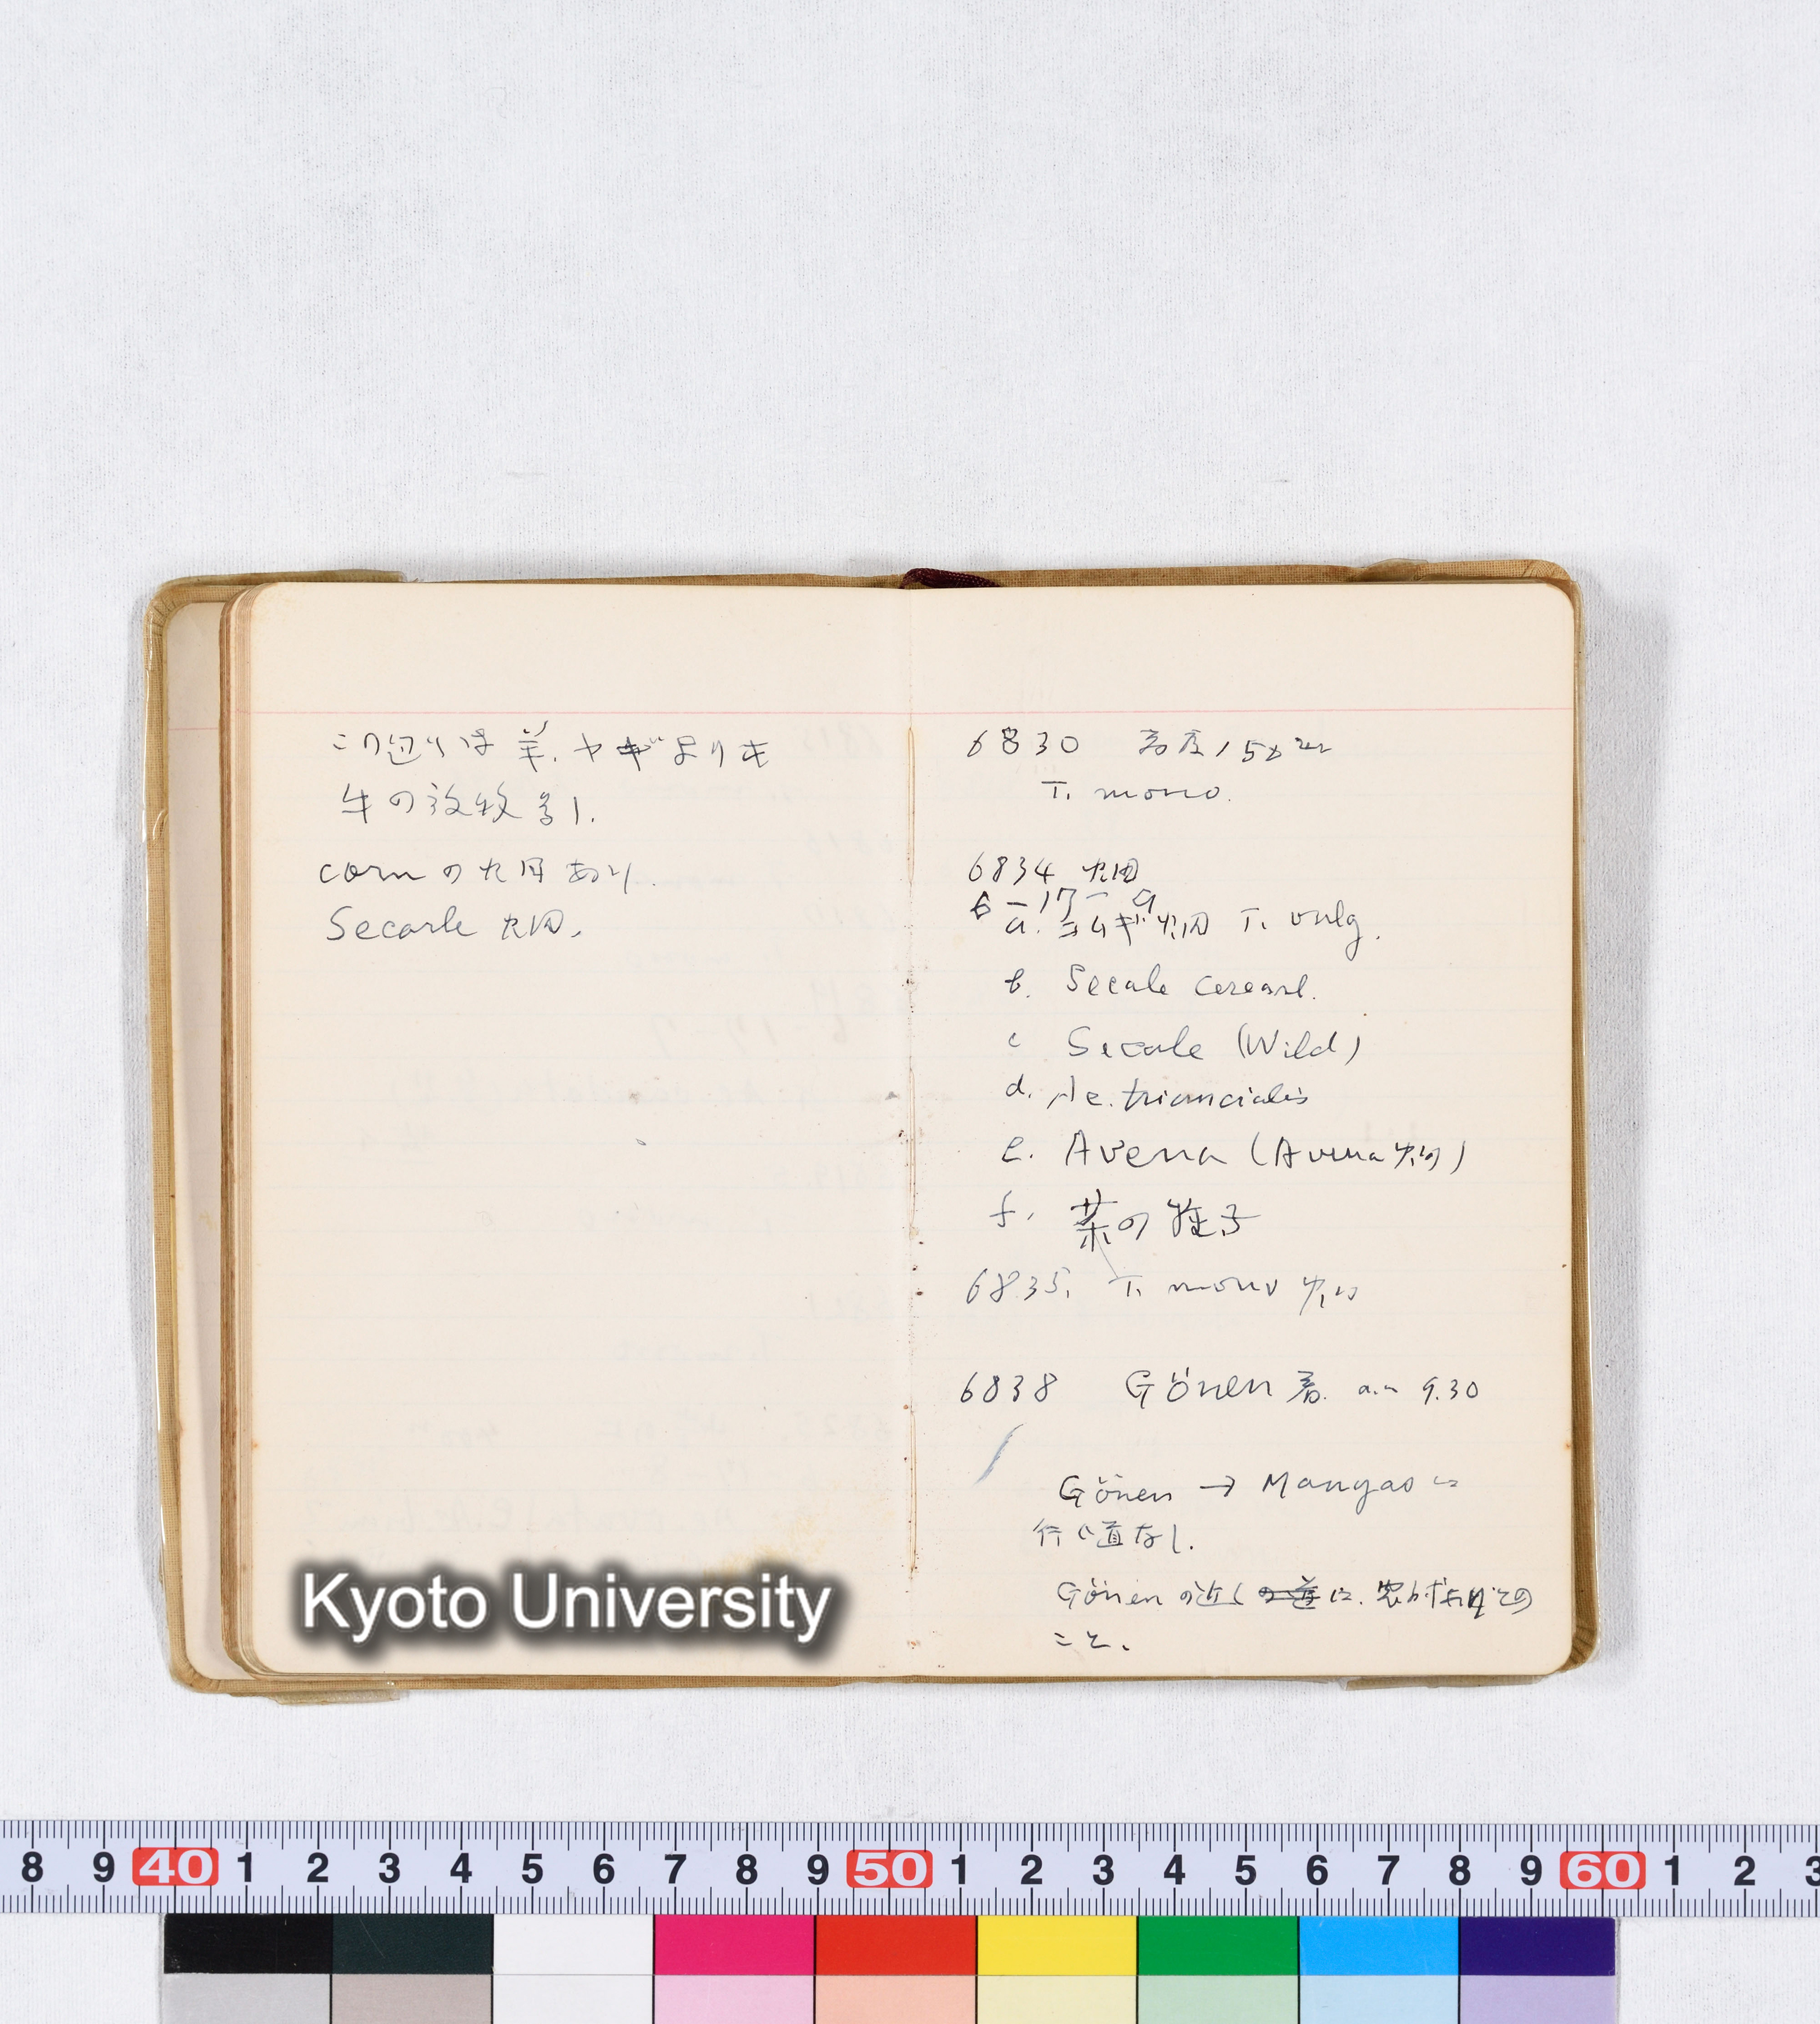 この辺りは羊.ヤギよりも
牛の放牧多し.
cornの畑あり.
Secarle 畑.
6830 高度150m
T. mono.
6834 畑
6-17-9
a. コムギ畑 T. vulg.
b. Secale cereal.
c Secale (Wild)
d. Ae. triuncialis
e. Avena (Avena 畑)
f. 菜の種子
6835. T. mono 畑
6838 Gönen 着. a.m 9.30
Gönen → Manyas に
行く道なし.
Gönen の近く の道 に.
こと.
Kyoto University
8 9 40 1 2 3 4 5 6 7 8 9 50 1 2 3 4 5 6 7 8 9 60 1 2 3